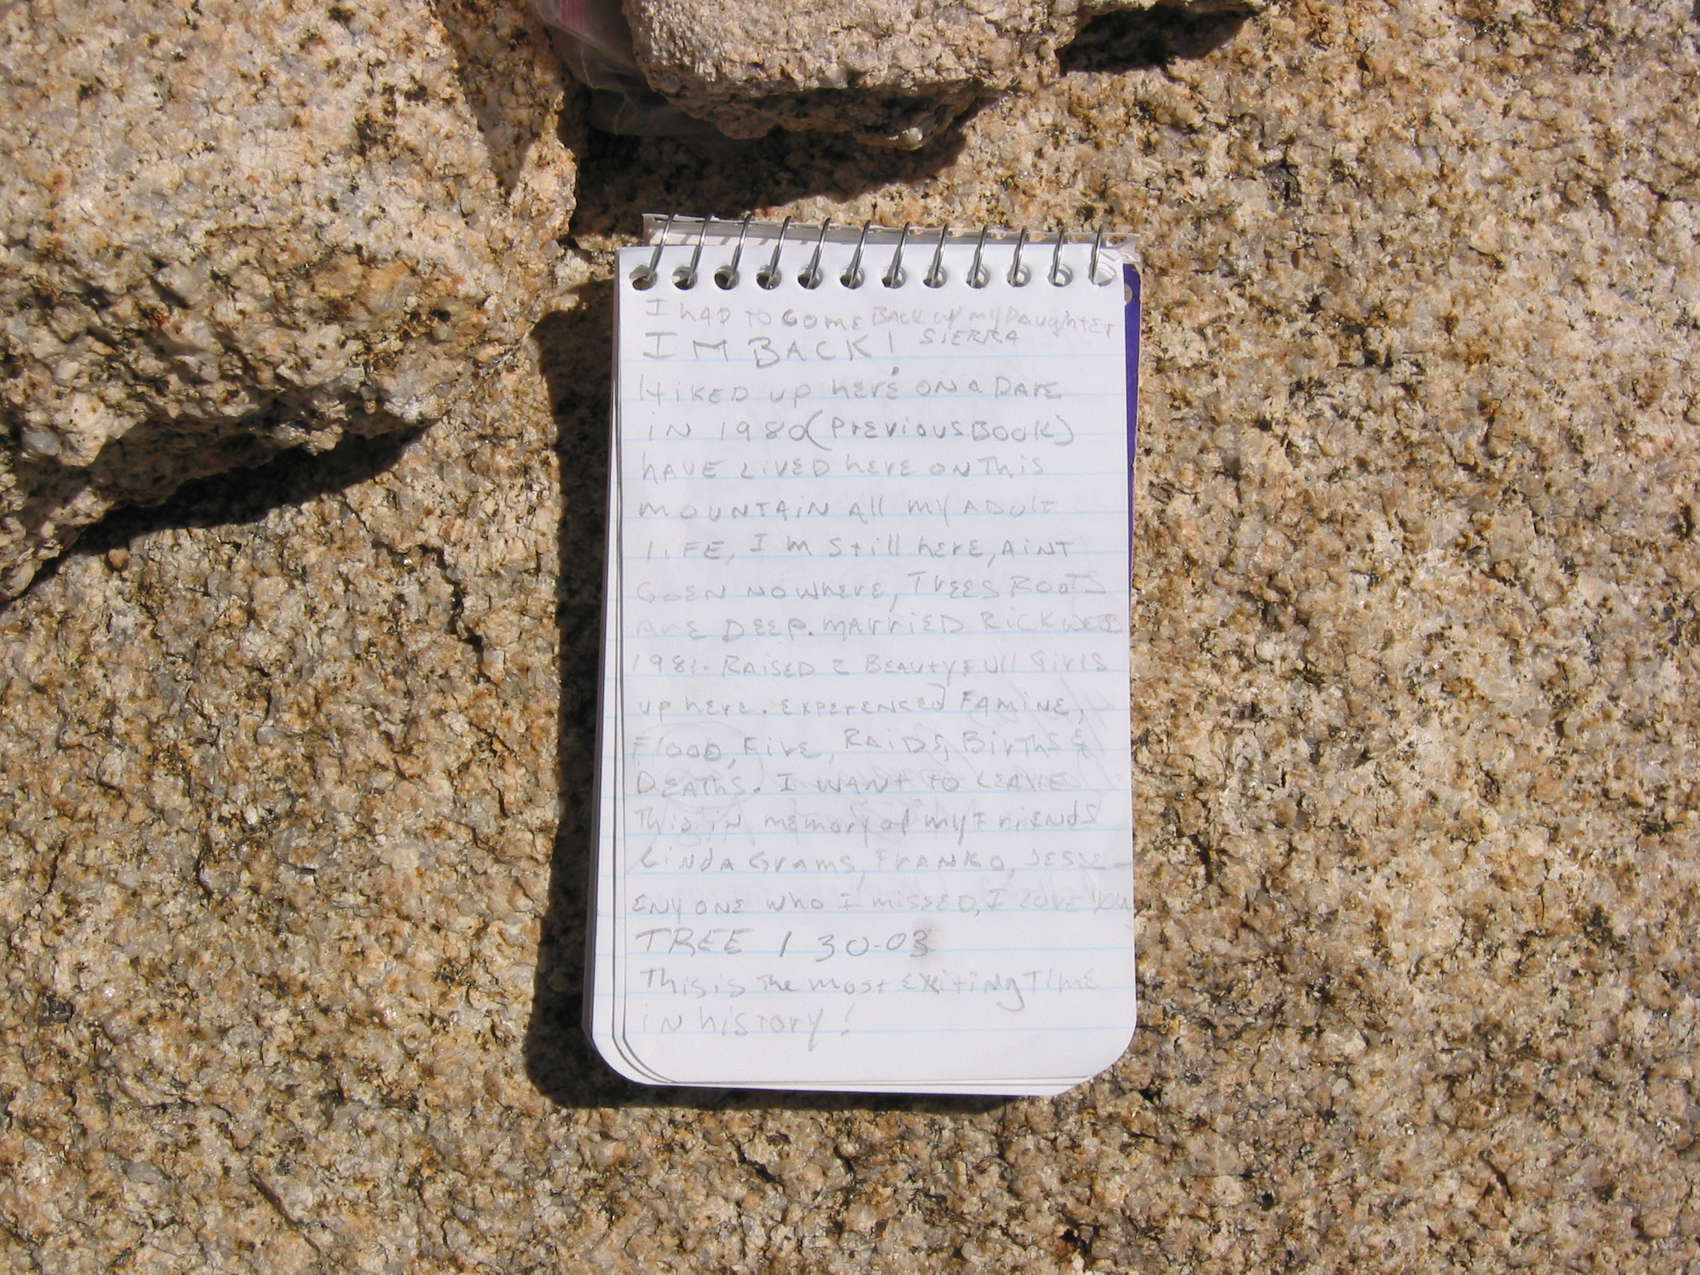 I HAD TO COME BACK UP MY DAUGHTER
SIERRA
I M BACK!
HIKED UP HERE ON A DARE
IN 1980 (PREVIOUS BOOK)
HAVE LIVED HERE ON THIS
MOUNTAIN All MY ADULT
LIFE, I M Still here, AINT
GOEN NOWHERE, TREES ROOTS
ARE DEEP. MARRIED RICK
1981. RAISED 2 BEAUTYFUll GirlS
UP here. EXPERENCED FAMINE,
FlOOD, FirE, RAIDS, BirthS &
DEATHS. I WANT TO LEAVE
This IN memory of my FriENdS
LINDA Grams, FRANKO, JESSE
ENYONE who I MISSED, I LOVE YOU
TREE 1 30-03
This is The most EXITING TIME
IN hisTory!